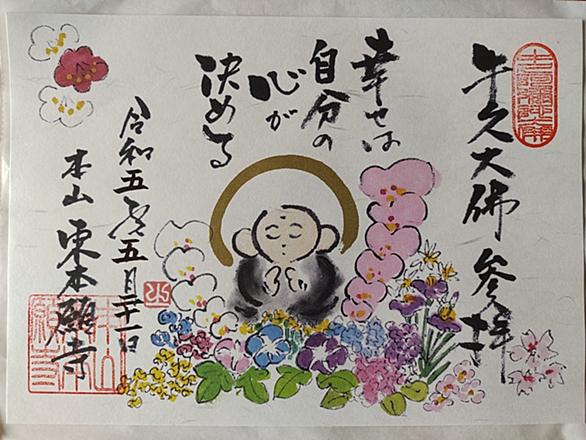 牛久大佛参拝
幸せは
自分の
心が
決める
令和五年五月二十一日
本山東本願寺